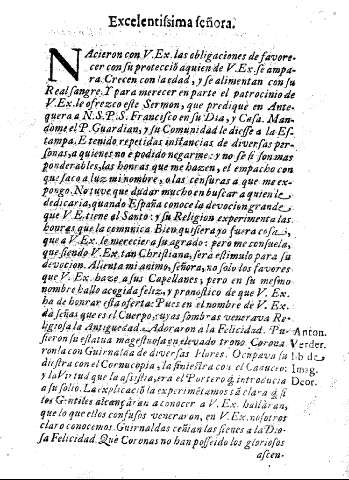 Excelentissima señora.
NAcieron con V. Ex. las obligaciones de favore-
cer con su protecció aquien de V. Ex. se ampa-
ra. Crecen con la edad, y se alimentan con su
Real sangre. Y para merecer en parte el patrocinio de
V. Ex. le ofrezco este Sermon, que prediquè en Ante-
quera a N. S. P. S. Francisco en su Dia, y Casa. Man-
dome el P. Guardian, y su Comunidad le diesse a la Es-
tampa. E tenido repetidas instancias de diversas per-
sonas, a quienes no e podido negarme: y no se si son mas
ponderables, las honras que me hazen, el empacho con
que saco a luz mi nombre, o las censuras a que me ex-
pongo. No tuve que dudar mucho en buscar a quien le
dedicaria, quando España conoce la devocion grande
que V. Ex. tiene al Santo: y su Religion experimenta las
honras que la comunica Bien quisiera yo fuera cosa,
que a V. Ex. le mereciera su agrado: pero me consuela,
que siendo V. Ex. tan Christiana, serà estimulo para su
devocion. Alienta mi animo, señora, no solo los favores
que V. Ex. haze a sus Capellanes, pero en su mesmo
nombre hallo acogida feliz, y pronostico de que V. Ex.
ha de honrar esta oferta: Pues en el nombre de V. Ex.
dà señas que es el Cuerpo, cuyas sombras venerava Re-
ligiosa la Antiguedad. Adoraron a la Felicidad. Pu- Anton.
sieron su estatua magestuosa en elevado trono. Corona- Verder.
ronla con Guirnalda de diversas Flores. Ocupava su lib de
diestra con el Cornucopia, la siniestra con el Caduceo: Imag.
y la Virtud que la assistia, era el Portero q̃ introducia Deor.
a su solio. La explicaciõ la experimẽtamos tã clara q̃ si
los Gentiles alcançàran a conocer a V. Ex. hallàran,
que lo que ellos confusos veneraron, en V. Ex. nosotros
claro conocemos. Guirnaldas ceñian las sienes a la Dio-
sa Felicidad. Què Coronas no han posseido los gloriosos
ascen-